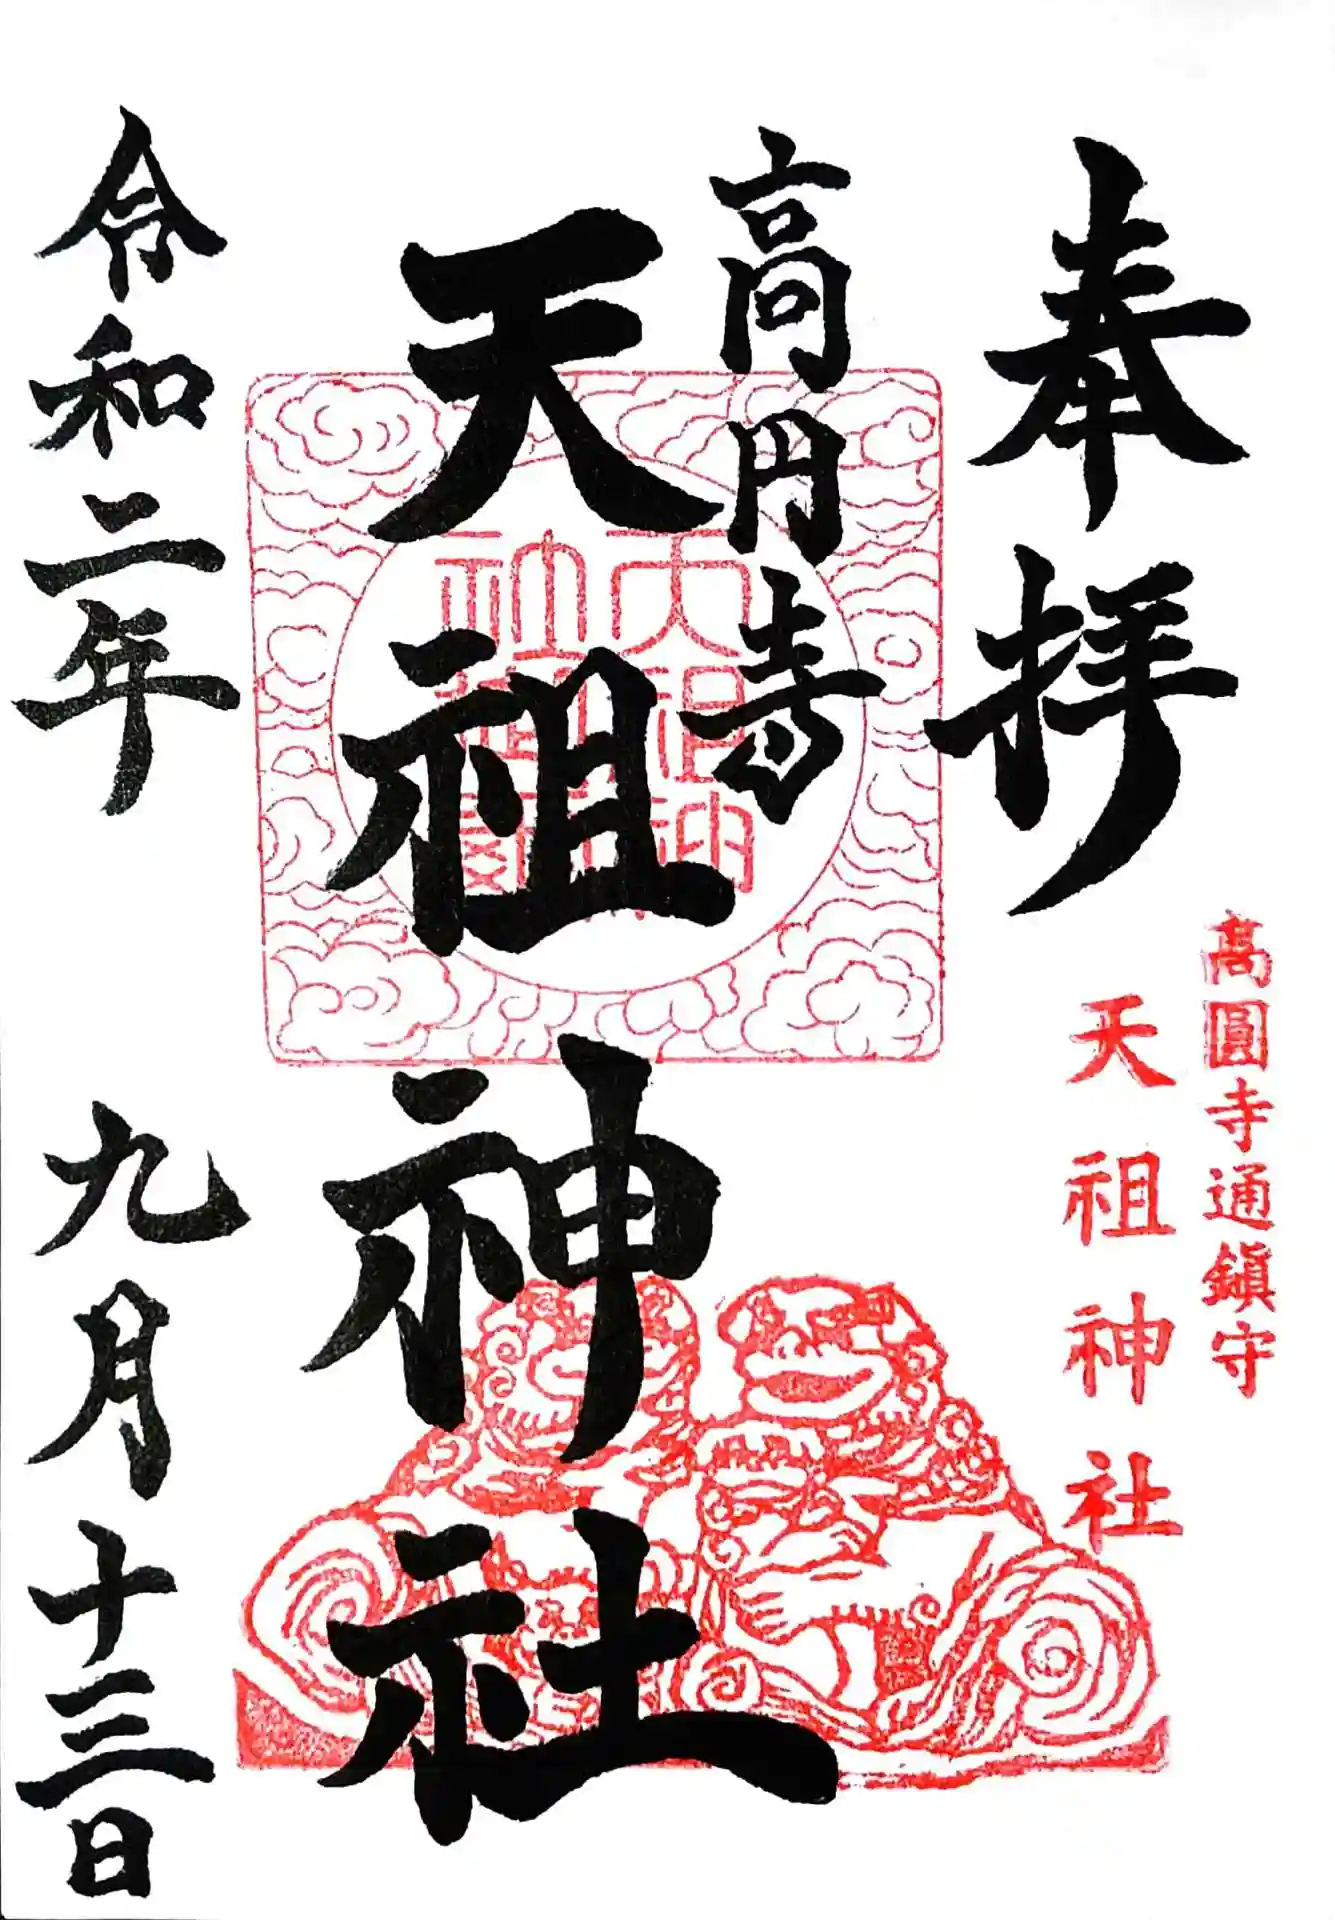 奉拝
高圓寺通鎮守
天祖神社
高円寺
天祖神社
令和二年 九月十三日